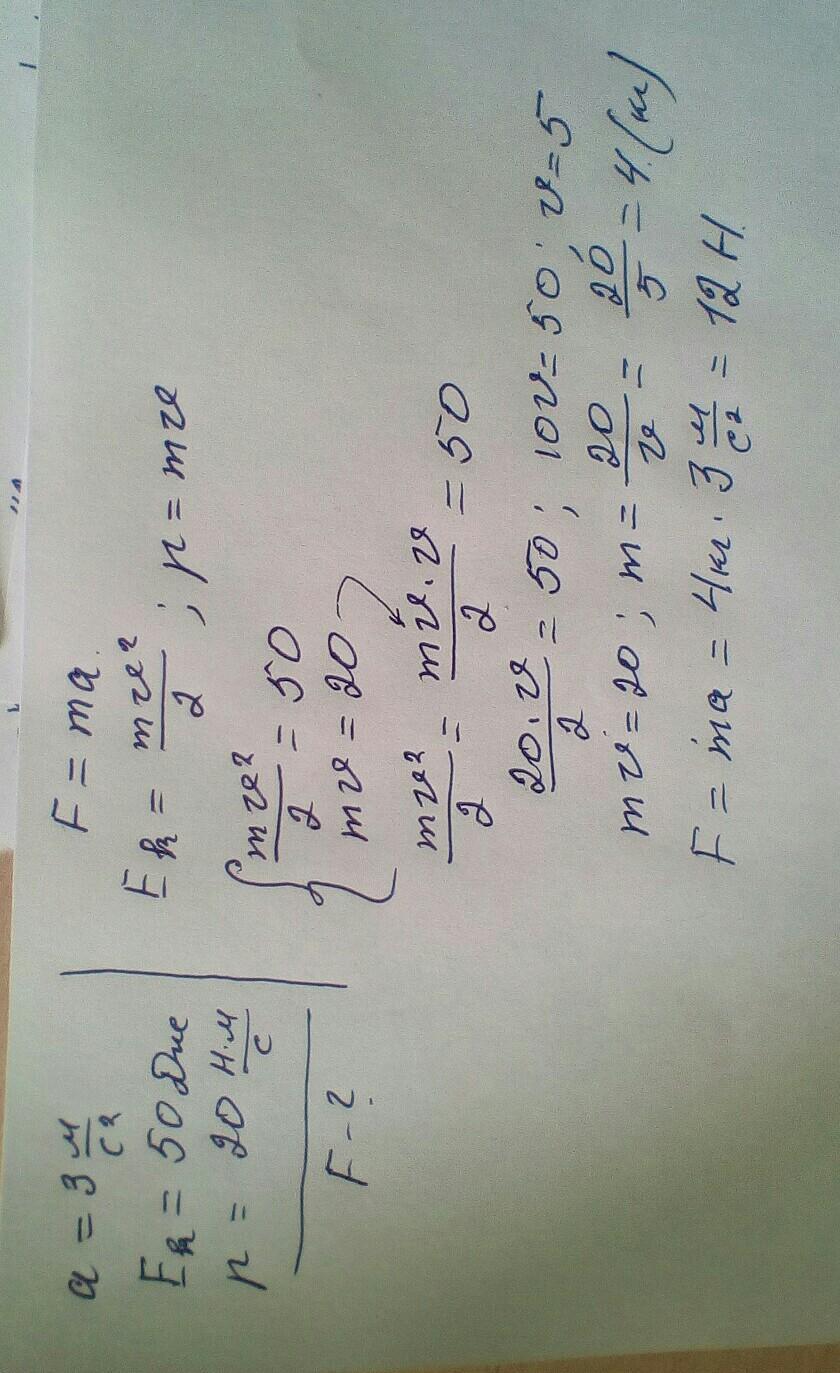 a = 3 м/с²
Eк = 50 Дж
p = 20 Н·м/с
F - ?
F = ma.
Eк = mv²/2 ; p = mv
{ mv²/2 = 50
mv = 20
mv²/2 = mv·v/2 = 50
20·v/2 = 50 ; 10v = 50 ; v = 5
mv = 20 ; m = 20/v = 20/5 = 4 (кг)
F = ma = 4кг · 3 м/с² = 12 Н.